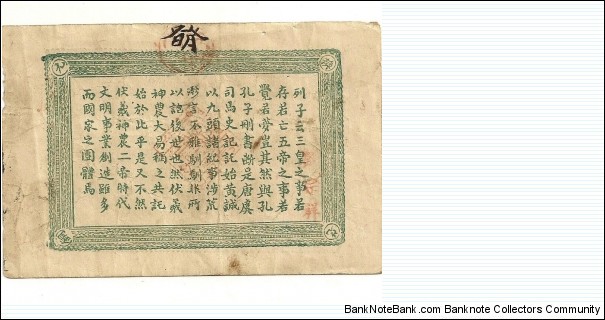 列子云三皇之事若
存若亡五帝之事若
覺若夢豈其然與孔
孔子刪書斷是唐虞
司馬史記託始黃誠
以九頭諸紀事涉荒
以詒後世也然伏羲
神農大易稱之共託
始於此乎是又不然
伏羲神農二帝時代
文明事業創造雖多
而國家之團體焉
www.BankNoteBank.com - BankNote Collectors Community